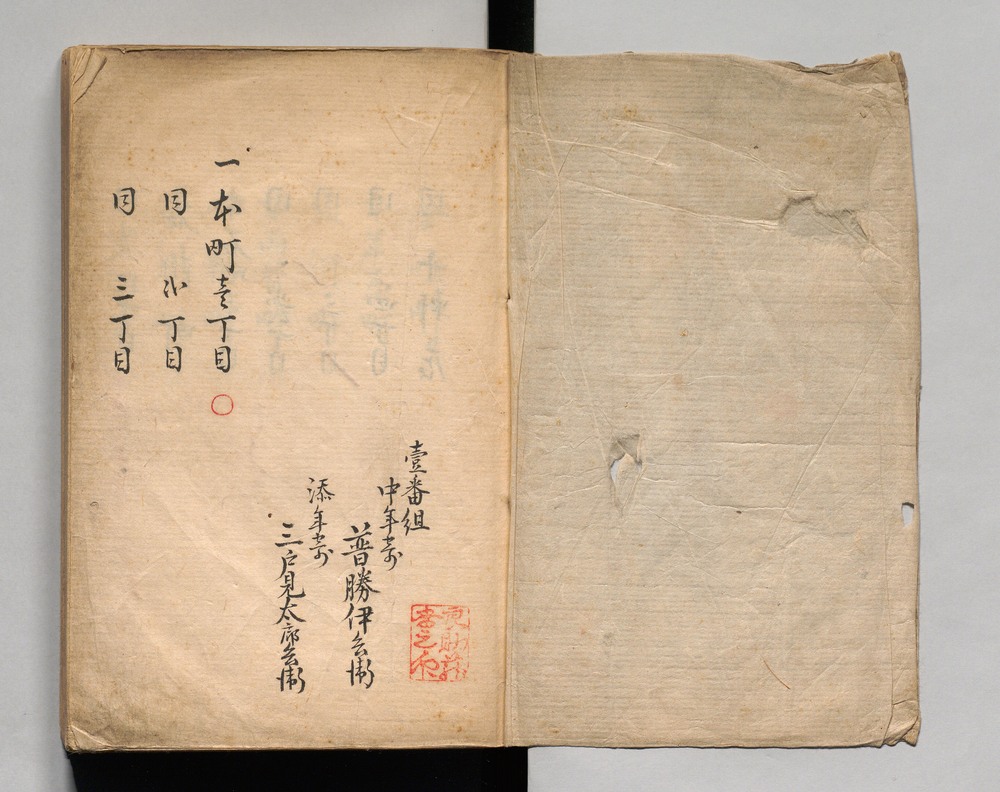 壹番組
中年寄
普勝伊兵衛
添年寄
三戸見太郎兵衛
一本町壱丁目
同 弐丁目
同 三丁目